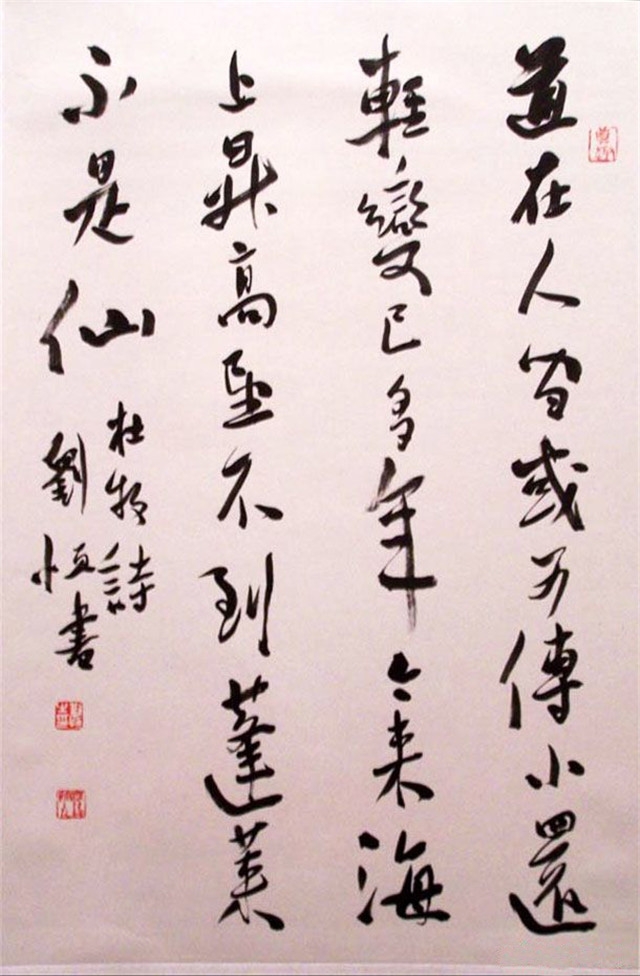 道在人間或可傳小還
輕變已多年今來海
上昇高望不到蓬萊
不是仙
杜牧詩
劉恒書